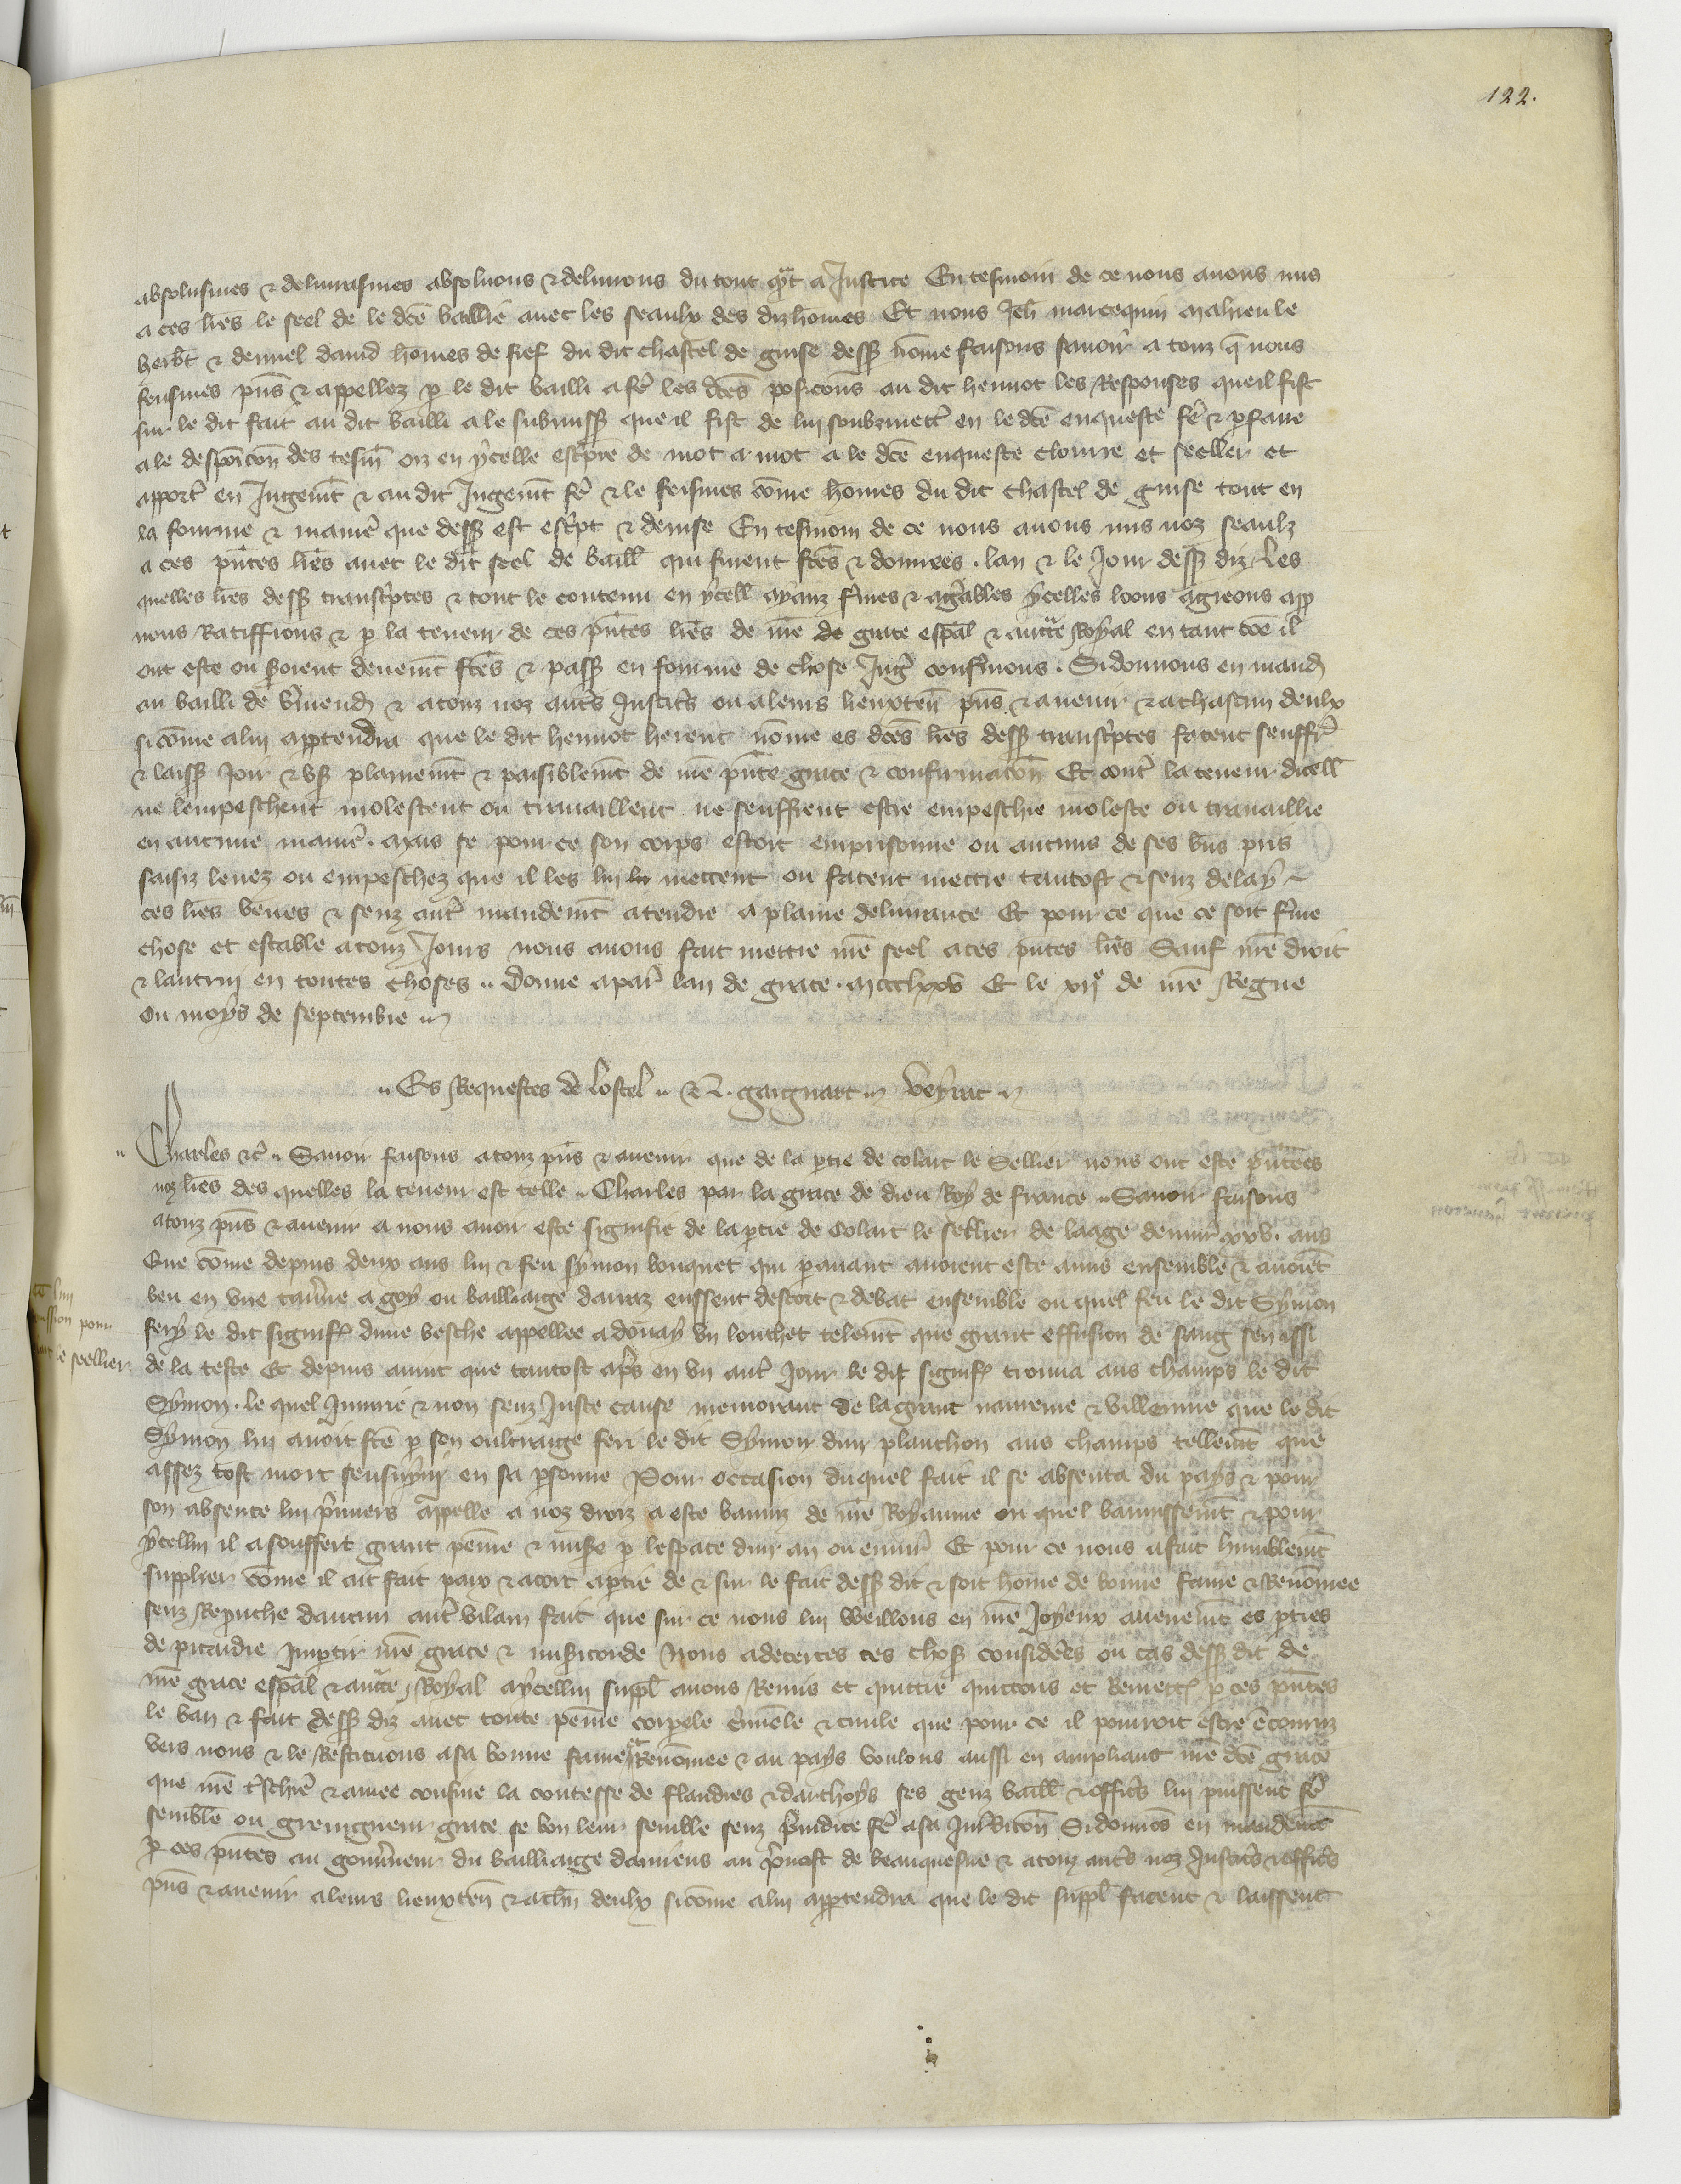 122.
absolusmes & deliurasmes absoluons & deliurons du tout qnt a Justice En tesmoin de ce nous auons mis
a ces lres le seel de le dce baillie auec les seaulx des diz hommes Et nous Jeh marcequin mahieu le
herbt & deuuel dauid hommes de fief du dit chastel de guise dess nomme faisons sauoir a touz q nous
feusmes pns & appellez p le dit bailli a fe les dces posicons au dit heniot les Responses que il fist
sur le dit fait au dit bailli a le submiss que il fist de lui soubzmett en le dce enqueste fe & pfaue
a le desposicon des tesm oiz en ycelle escpre de mot a mot a le dce enqueste clorre et seeller et
apport en Jugemt & au dit Jugemt fe & le feismes come homes du dit chastel de guise tout en
la fourme & manie que dess est escpt & deuise En tesmoin de ce nous auons mis noz seaulz
a ces pntes lres auec le dit seel de baill qui furent fces & donnees . lan & le Jour dess diz Les
quelles lres dess transcptes & tout le contenu en ycell ayanz fmes & agables ycelles loons agreons app
uons Ratiffions & p la teneur de ces pntes lres de nre de grace espal & aucte Royal en tant coe il
ont este ou soient deuemt fces & pass en fourme de chose Jug confmons . Si donnons en mand
au bailli de Vmend & a touz noz autres Justic ou a leurs lieuxten pns & auenir & a chascun deulx
si come a lui appartendra que le dit heniot herent nomme es dces lres dess transcptes facent seuffr
& laiss Joir & vs plainemt & paisiblemt de nre pnte grace & confirmacon Et contr la teneur dicell
ne lempeschent molestent ou trauaillent ne seuffrent estre empeschie moleste ou trauaillie
en aucune manie . mais se pour ce son corps estoit emprisonne ou aucuns de ses bns pris
saisiz leuez ou empeschez que il les lui mettent ou facent mettre tantost & senz delay
ces lres veues & senz autr mandemt atendre a plaine deliurance Et pour ce que ce soit fme
chose et estable a touz Jours nous auons fait mettre nre seel a ces pntes lres Sauf nre droit
& lautrui en toutes choses .. Donne a par lan de grace . mccclxxv Et le xije de nre Regne
ou moys de septembre
.. Es Requestes de lostel .. & R . gaignart .. Veyrat ..
Charles &c .. Sauoir faisons a touz pns & auenir que de la ptie de colart le Sellier nous ont este pntees
noz lres des quelles la teneur est telle .. Charles par la grace de dieu Roy de france .. Sauoir faisons
a touz pns & auenir a nous auoir este signifie de la ptie de Colart le sellier de laage denuir xxv . ans
Que come depuis deux ans lui & feu symon bouquet qui pauant auoient este amis ensemble & auoiet
beu en vne tauerne a goy ou bailliaige darraz eussent descort & debat ensemble ou quel feu le dit Symon
fery le dit signif dune besche appellee a douay vn louchet telemt que grant effusion de sang sen issi
de la teste Et depuis auint que tantost aps en vn autr Jour le dit signif trouua aus champs le dit
Symon . le quel Jniurie & non senz Juste cause memorant de la grant naureure & villennie que le dit
Symon lui auoit fce p son oultraige feri le dit Symon dun planchon aus champs tellemt que
assez tost mort sensuyui en sa psonne Pour occasion duquel fait il se absenta du pays & pour
son absence lui pmiers appelle a noz droiz a este banniz de nre Royaume ou quel bannissemt & pour
ycellui il a souffert grant peine & mise p lespace dun an ou enuir Et pour ce nous a fait humblemt
supplier come il ait fait paix & acort a ptie de & sur le fait dess dit & soit home de bonne fame & Renommee
senz Reprouche daucun autr vilain fait que sur ce nous lui weillons en nre Joyeux aduenemt es pties
de picardie Jmptir nre grace & misicorde Nous adecertes ces chos considees ou cas dess dit de
nre grace espal & aucte Royal a ycellui suppl auons Remis et quittie quittons et Remett p ces pntes
le ban & fait dess diz auec toute peine corpele cmiele & ciuile que pour ce il pourroit estre encouruz
vers nous & le Restituons a sa bonne fame & Renommee & au pays voulons aussi en ampliant nre dce grace
que nre tschie & amee cousine la contesse de flandres & darthoys ses genz baill & offics lui puissent fe
semble ou greingneur grace se bon leur semble senz preiudice fe a sa Juridicon Si donnos en mandemt
p ces pntes au gouuneur du bailliaige damiens au puost de beauquesne & a touz auts noz Justics & offics
pns & auenir a leurs lieuxten & a chun deulx si come a lui appartendra que le dit suppl facent & laissent
le seellier